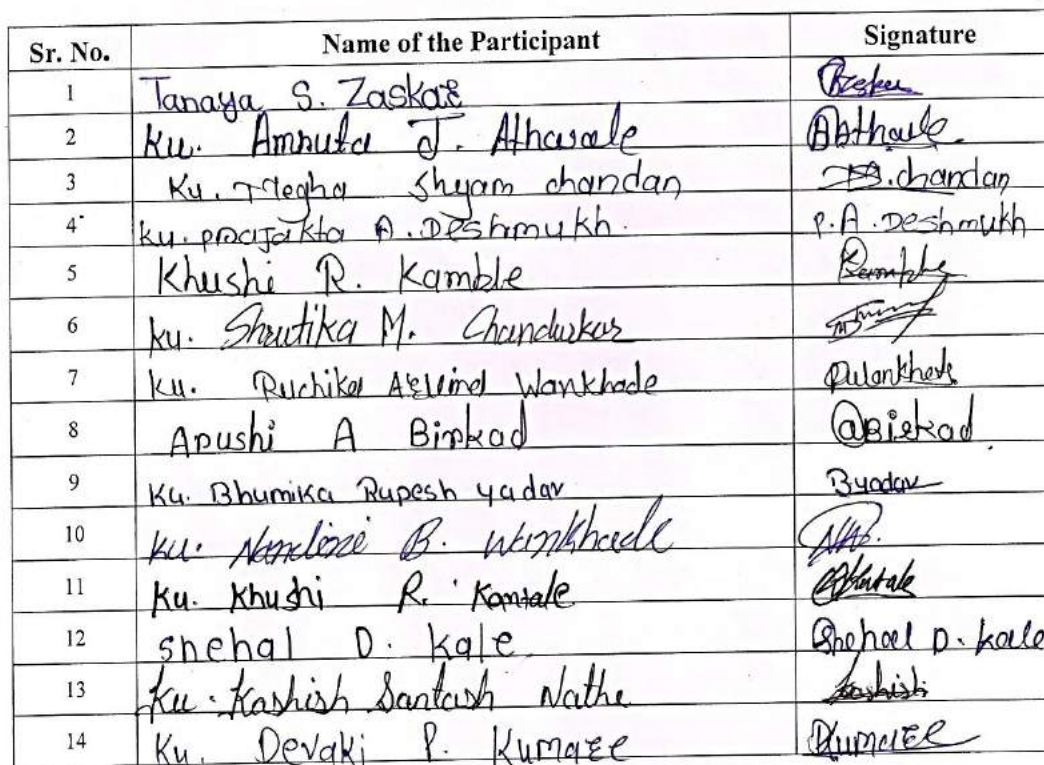 Sr. No. Name of the Participant Signature
1 Tanaya S. Zaskar
2 Ku. Amruta J. Athavale
3 Ku. Megha Shyam chandan chandan
4 ku. prajakta A. Deshmukh. P. A. Deshmukh
5 Khushi R. Kamble Kamble
6 Ku. Shrutika M. Chandurkar
7 Ku. Ruchika Arvind Wankhade
8 Arushi A Birkad Birkad
9 Ku. Bhumika Rupesh yadav Byadav
10 Ku. Nandini B. Wankhade
11 Ku. Khushi R. Kantale
12 snehal D. kale Snehal D. kale
13 Ku. Kashish Santosh Nathe Kashish
14 Ku. Devaki P. Kumare Kumare